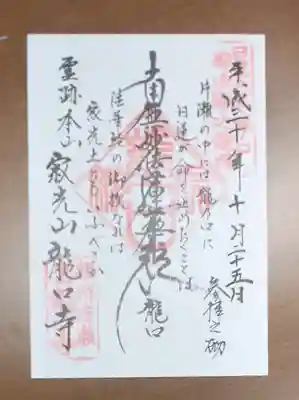 平成三十年十月二十五日
参拝之砌
片瀬の中には龍の口に
日蓮が命を止めおくことは
南無妙法蓮華経
龍口
法華経の御故なれば
寂光土ともいふべきか
霊跡本山
寂光山龍口寺